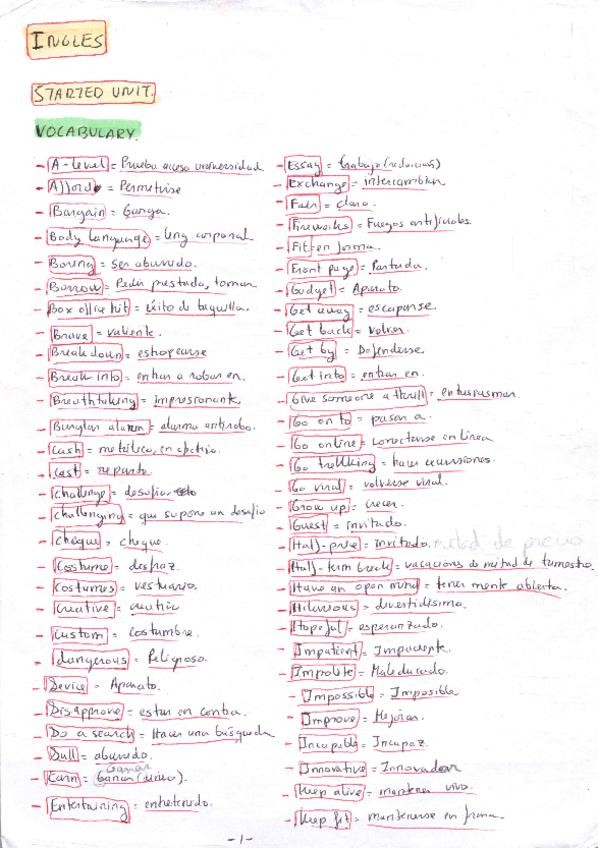 INGLES
STARTED UNIT.
VOCABULARY.
- A-level = Prueba acceso universidad
- Afford = Permitirse
- Bargain = Ganga.
- Body language = leng corporal
- Boring = ser aburrido.
- Borrow = Pedir prestado, tomar
- Box office hit = éxito de taquilla.
- Brave = valiente.
- Break down = estropearse
- Break into = entrar a robar en.
- Breathtaking = impresionante
- Burglar alarm = alarma antirrobo.
- Cash = metálico, en efectivo.
- Cast = reparto.
- Challenge = desafio
- Challenging = que supone un desafio
- cheque = cheque.
- Costume = disfraz.
- Costumes = vestuario.
- Creative = creativo
- Custom = costumbre.
- dangerous = Peligroso.
- Device = Aparato.
- Disapprove = estar en contra.
- Do a search = Hacer una búsqueda
- Dull = aburrido.
- Earn = Ganar (dinero).
- Entertaining = entretenido.
- Essay = trabajo (redacción)
- Exchange = intercambiar
- Fair = claro.
- Fireworks = Fuegos artificiales
- Fit = en forma.
- Front page = Portada.
- Gadget = Aparato.
- Get away = escaparse.
- Get back = volver.
- Get by = Defenderse.
- Get into = entrar en.
- Give someone a thrill = entusiasmar.
- Go on to = pasar a.
- Go online = conectarse en línea
- Go trekking = hacer excursiones.
- Go viral = volverse viral.
- Grow up = crecer.
- Guest = invitado.
- Half-price = invitado. mitad de precio
- Half-term break = vacaciones de mitad de trimestre.
- Have an open mind = tener mente abierta.
- Hilarious = divertidísima.
- Hopeful = esperanzado.
- Impatient = Impaciente.
- Impolite = Maleducado.
- Impossible = Imposible
- Improve = Mejorar.
- Incapable = Incapaz.
- Innovative = Innovador
- Keep alive = mantener vivo.
- Keep fit = mantenerse en forma.
-1-